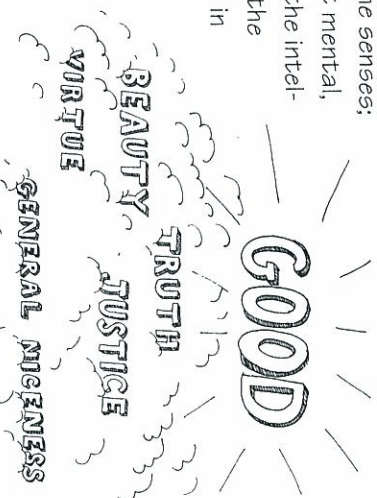 he senses;
mental,
the intel-
the
in
GOOD
TRUTH
BEAUTY
JUSTICE
VIRTUE
GENERAL NICENESS